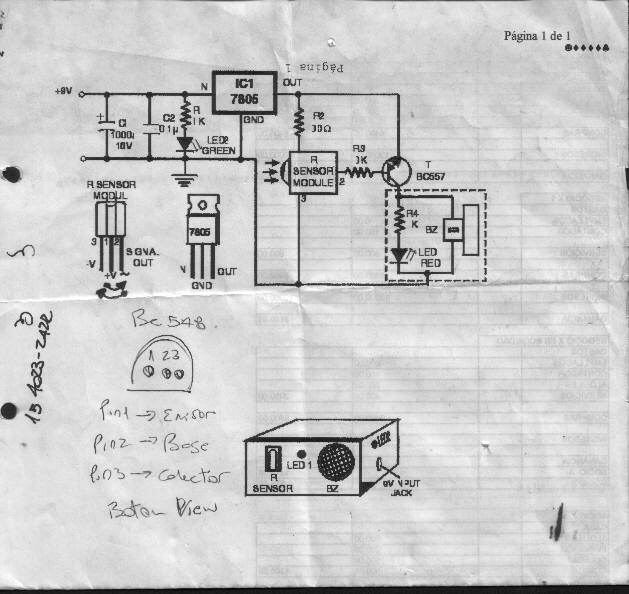 Página 1 de 1
Página 1
+9V
N
IC1
7805
OUT
GND
C1
1000µ
16V
C2
0.1µ
R
1K
LED2
GREEN
R2
R
SENSOR
MODULE
2
3
R3
T
BC557
R4
K
LED
RED
BZ
R SENSOR
MODUL
3 1 2
-V
+V
SIGNAL
OUT
7805
N
GND
OUT
Bc 548.
1 2 3
Pin1 → Emisor
Pin2 → Base
Pin3 → Colector
Boton View
15 4023-2422
R
SENSOR
LED 1
BZ
9V INPUT
JACK